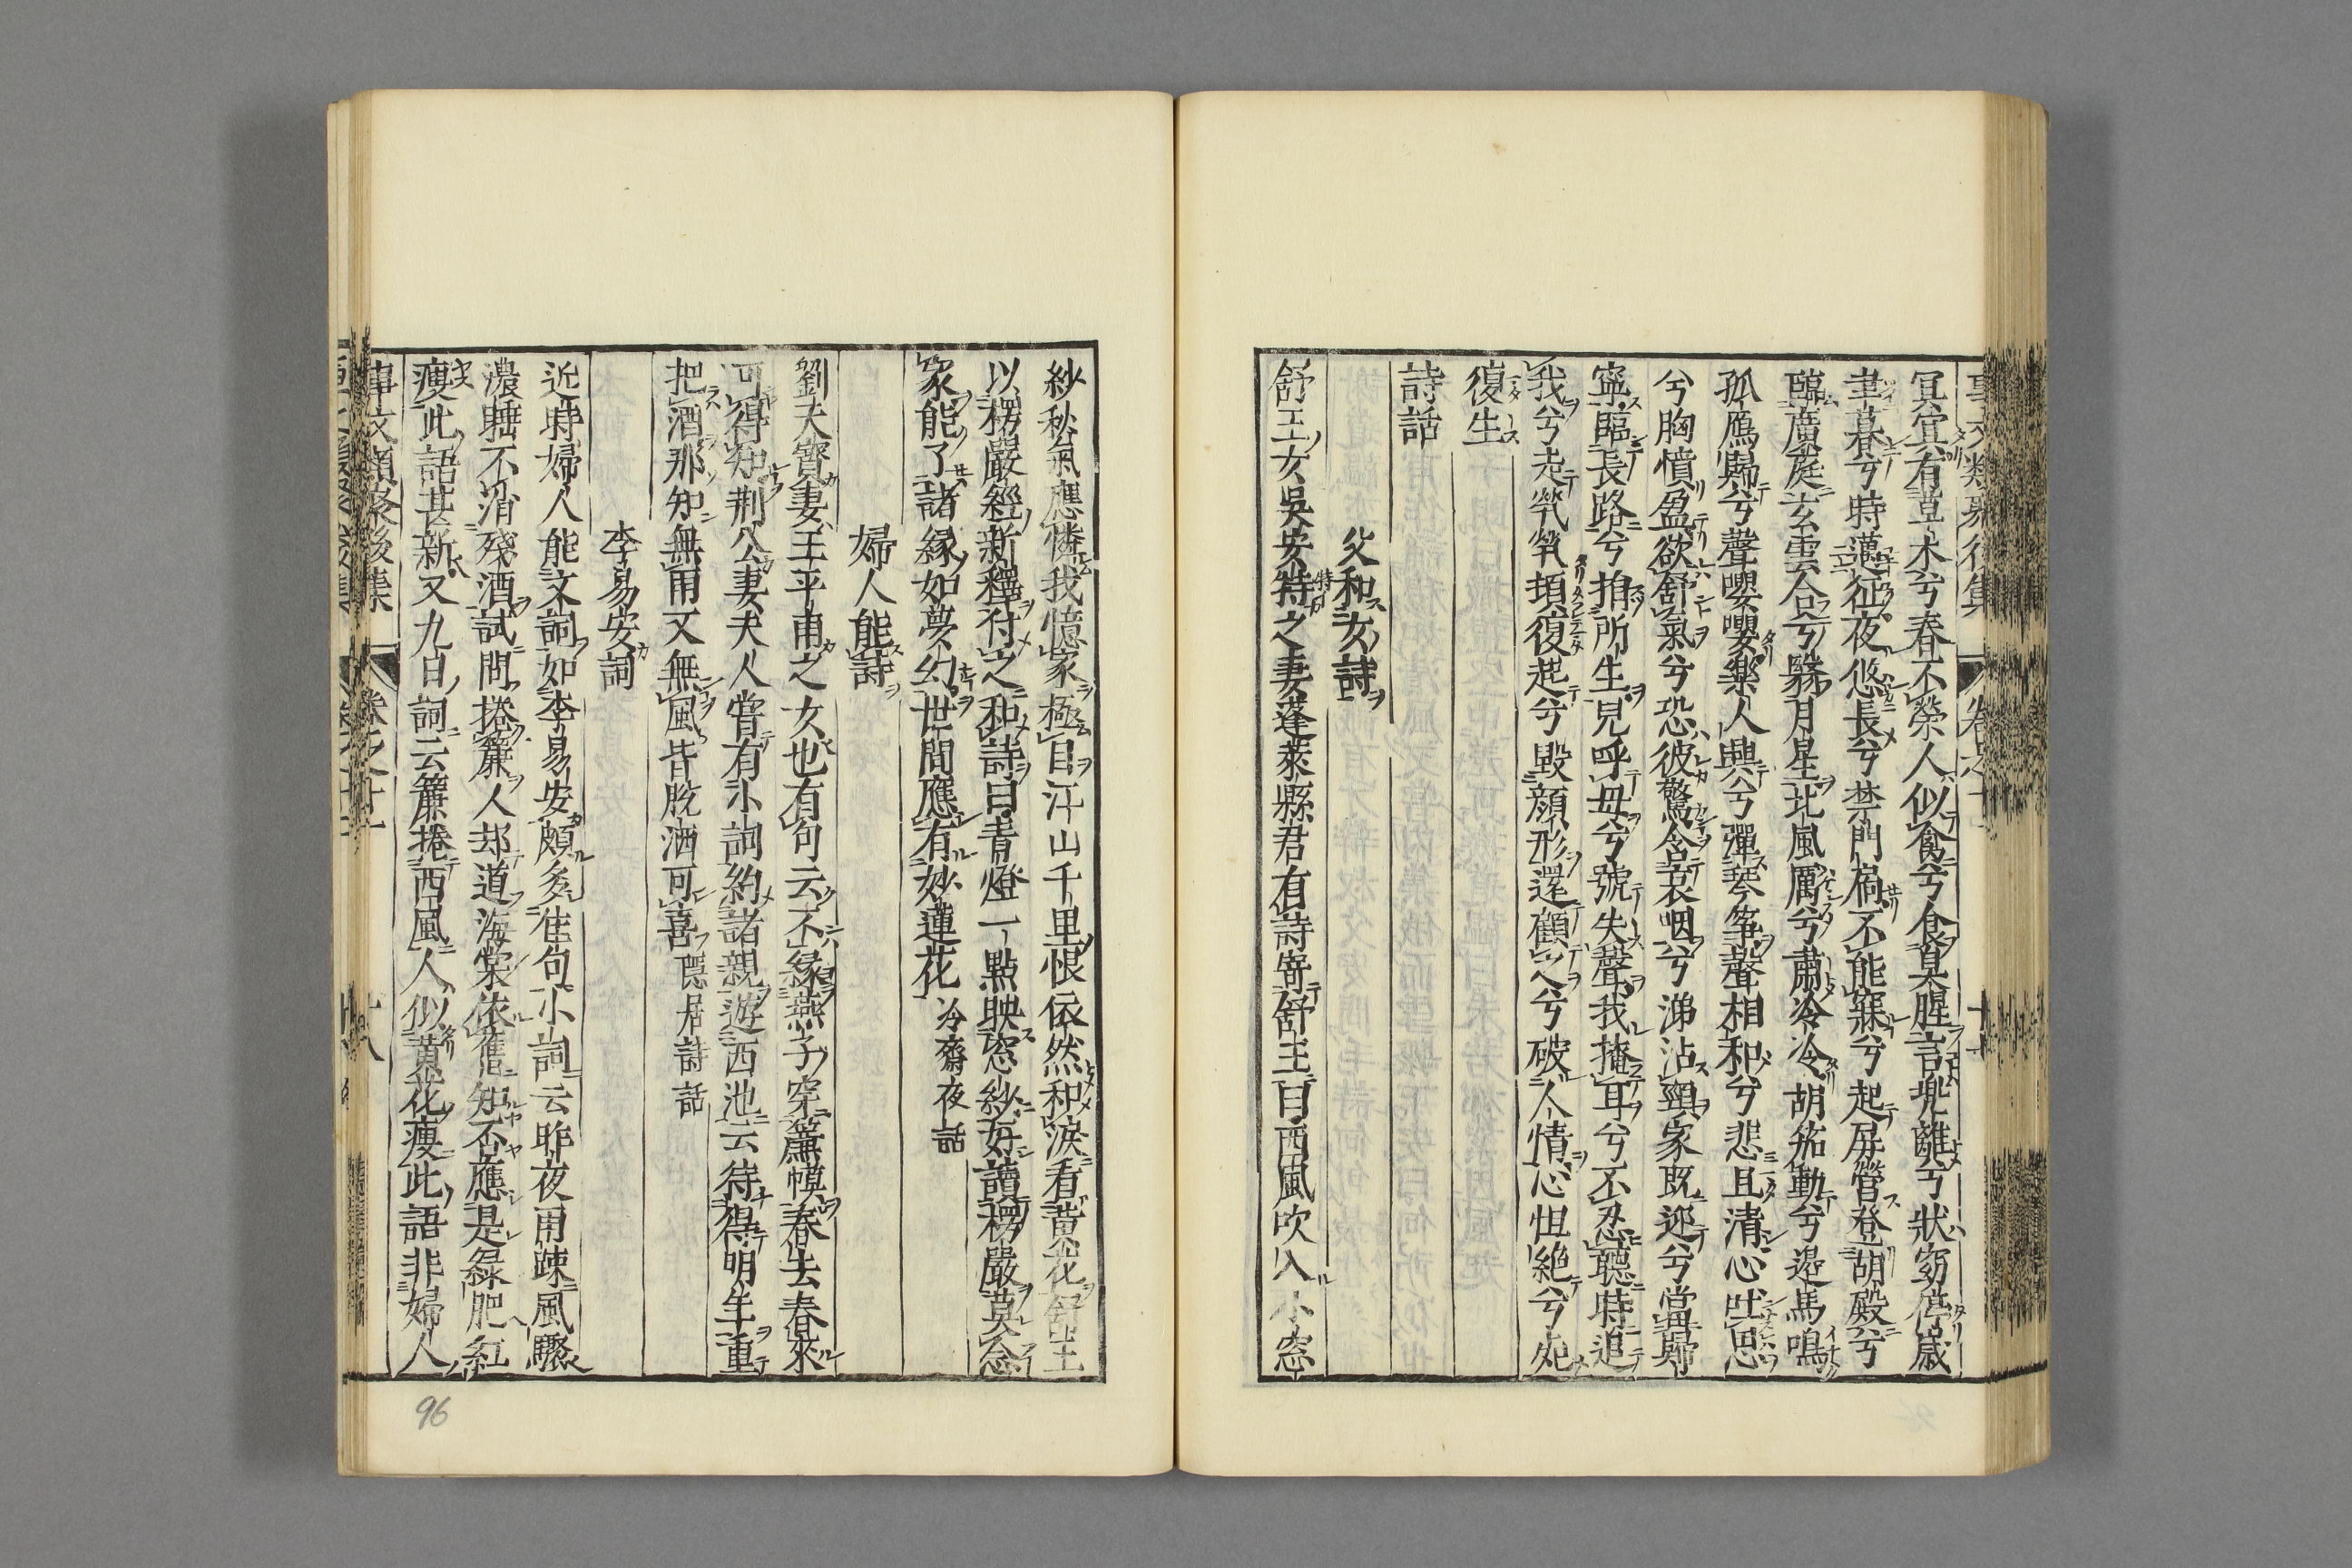 冥冥有草木兮春不榮人似禽兮食臭腥言兜離兮狀窈停歲
聿暮兮時邁征夜悠長兮禁門扃不能寐兮起屏營登胡殿兮
臨廣庭玄雲合兮翳月星北風厲兮肅泠泠胡笳動兮邊馬鳴
孤鴈歸兮聲嚶嚶樂人興兮彈琴筝聲相和兮悲且清心吐思
兮胸憤盈欲舒氣兮恐彼驚含哀咽兮涕沾頸家既迎兮當歸
寧臨長路兮捐所生兒呼母兮號失聲我掩耳兮不忍聽追
我兮走煢煢頓復起兮毀顏形還顧之兮破人情心怛絶兮死
復生
詩話
父和女詩
舒王女吳安持之妻蓬萊縣君有詩寄舒王曰西風吹入小窓
紗秋氣應憐我憶家極目江山千里恨依然和淚看黄花舒王
以楞嚴經新釋付之和詩曰青燈一點映窓紗好讀楞嚴莫念
家能了諸緣如夢幻世間應有妙蓮花 冷齋夜話
婦人能詩
劉天寶妻王平甫之女也有句云不緣燕子穿簾幙春去春來
可得知荆公妻夫人嘗有小詞約諸親遊西池云待得明年重
把酒那知無雨又無風皆脫洒可喜 隱居詩話
李易安詞
近時婦人能文詞如李易安頗多佳句小詞云昨夜雨踈風驟
濃睡不消殘酒試問捲簾人却道海棠依舊知否應是綠肥紅
瘦此語甚新又九日詞云簾捲西風人似黄花瘦此語非婦人
事文類聚後集 卷之十一 十八
96